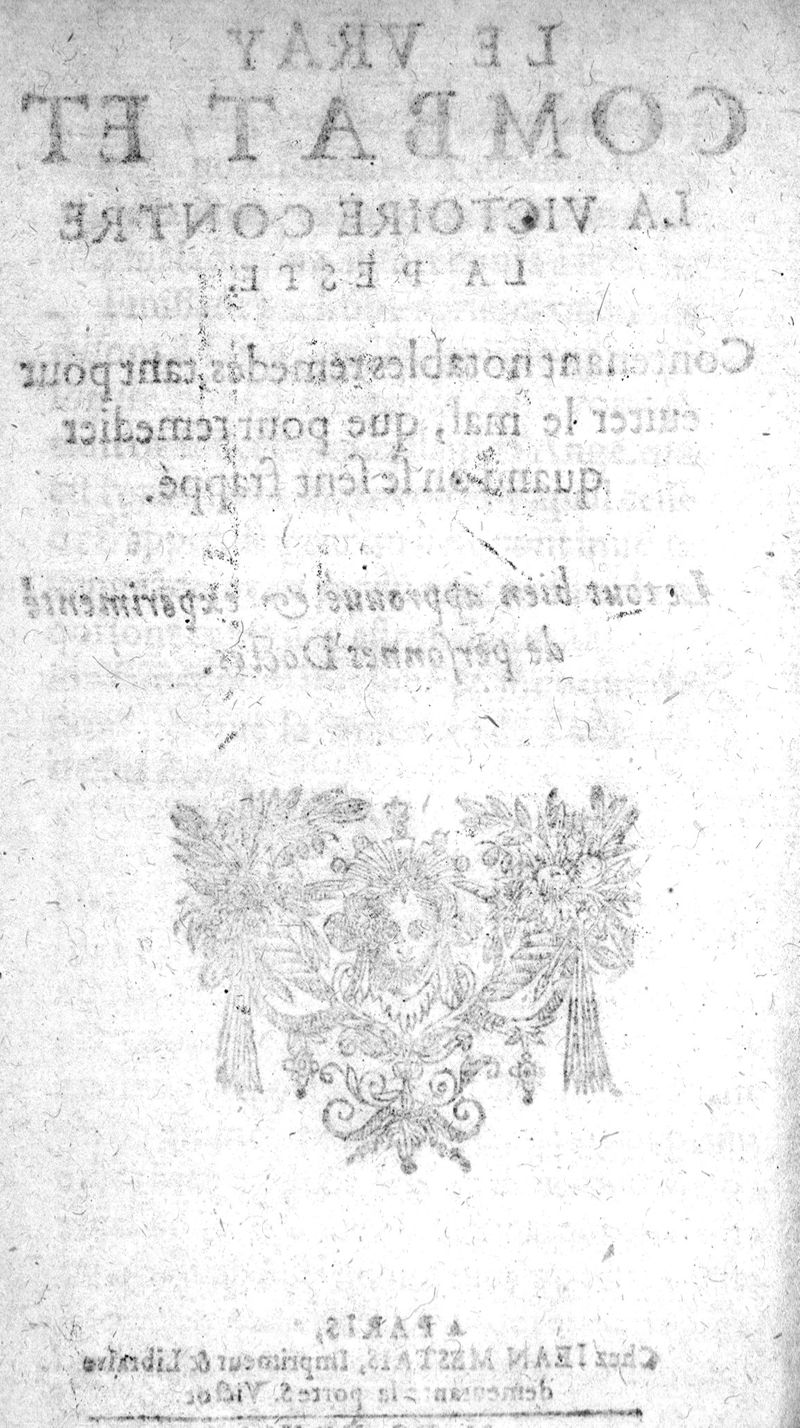 LE VRAY
COMBAT ET
LA VICTOIRE CONTRE
LA PESTE.
Contenant notables remedes, tant pour
euiter le mal, que pour remedier
quand on ſe ſent frappé.
Le tout bien approuué & experimenté
de perſonnes Doctes.
A PARIS,
Chez IEAN MESTAIS, Imprimeur & Libraire
demeurant à la porte S. Victor